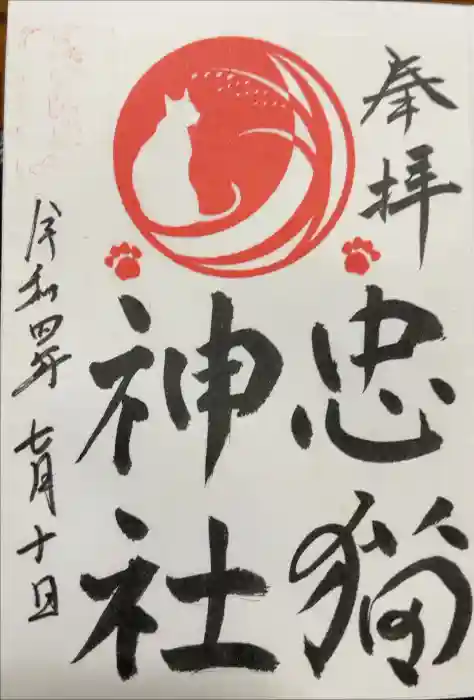 奉拝
忠猫
神社
令和四年 七月十日